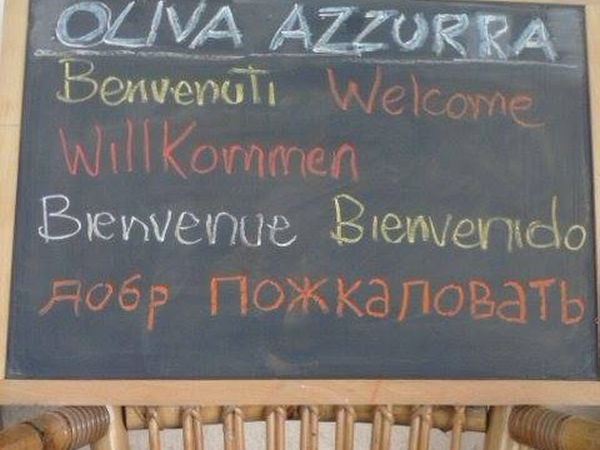 OLIVA AZZURRA
Benvenuti Welcome
Willkommen
Bienvenue Bienvenido
Добр пожаловать